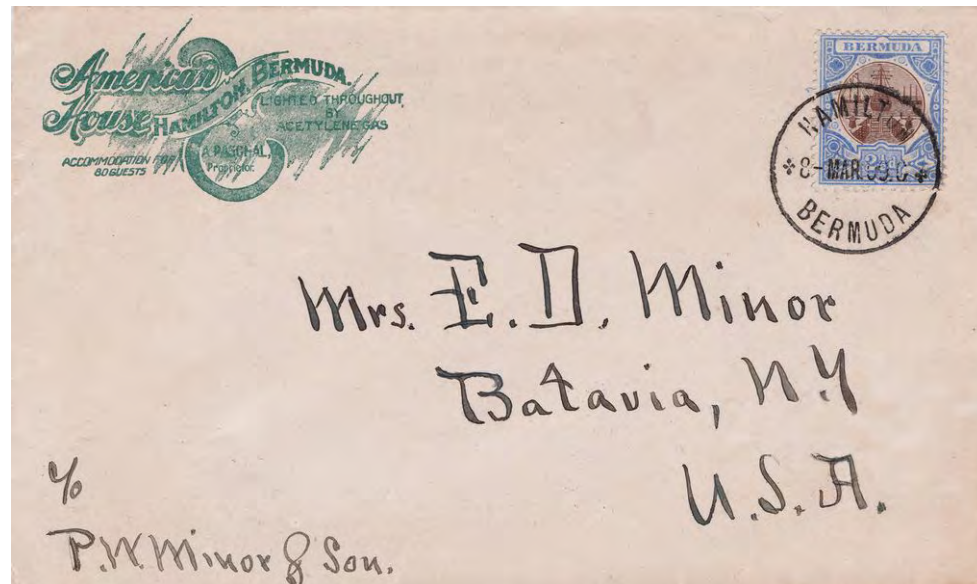 American
House
HAMILTON, BERMUDA.
LIGHTED THROUGHOUT
BY
ACETYLENE GAS
ACCOMMODATION FOR
80 GUESTS
A. PASCHAL,
Proprietor.
BERMUDA
HAMILTON
8-MAR.
BERMUDA
Mrs. E. D. Minor
Batavia, N.Y
U.S.A.
c/o
P.W. Minor & Son.